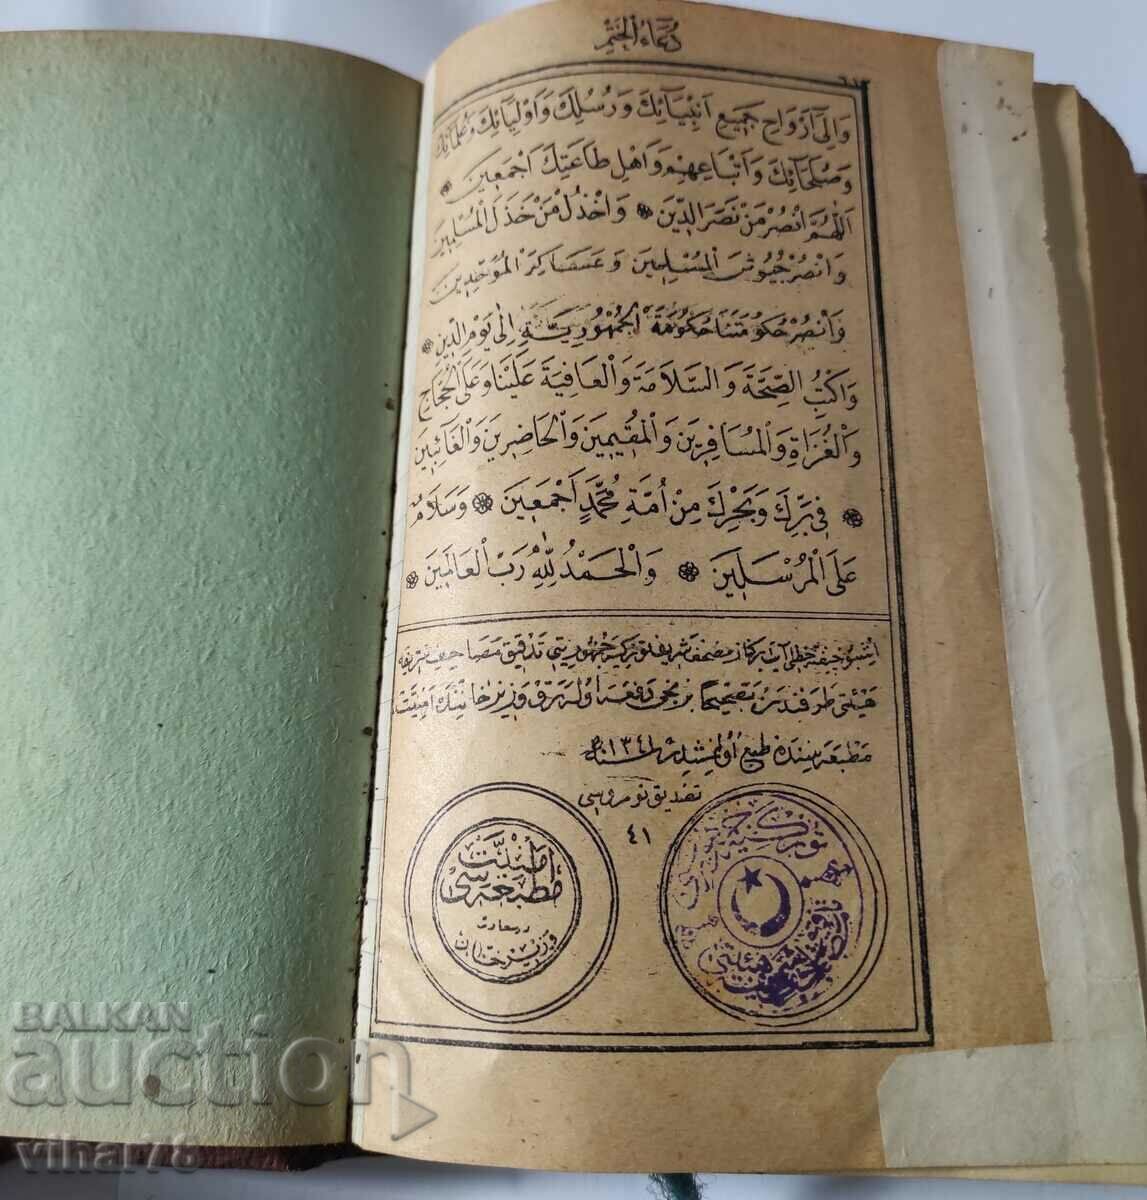 دُعَاءُ الْخَتْمِ
وَاِلٰى اَرْوَاحِ جَمِيعِ اَنْبِيَآئِكَ وَرُسُلِكَ وَاَوْلِيَآئِكَ وَعُلَمَآئِكَ
وَصُلَحَآئِكَ وَاَتْبَاعِهِمْ وَاَهْلِ طَاعَتِكَ اَجْمَعِينَ
اَللّٰهُمَّ انْصُرْ مَنْ نَصَرَ الدِّينَ وَاخْذُلْ مَنْ خَذَلَ الْمُسْلِمِينَ
وَانْصُرْ جُيُوشَ الْمُسْلِمِينَ وَعَسَاكِرَ الْمُوَحِّدِينَ
وَانْصُرْ حُكُومَتَنَا حُكُومَةَ الْجُمْهُورِيَّةِ اِلٰى يَوْمِ الدِّينِ
وَاكْتُبِ الصِّحَّةَ وَالسَّلَامَةَ وَالْعَافِيَةَ عَلَيْنَا وَعَلَى الْحُجَّاجِ
وَالْغُزَاةِ وَالْمُسَافِرِينَ وَالْمُقِيمِينَ وَالْحَاضِرِينَ وَالْغَآئِبِينَ
فِى بَرِّكَ وَبَحْرِكَ مِنْ اُمَّةِ مُحَمَّدٍ اَجْمَعِينَ وَسَلَامٌ
عَلَى الْمُرْسَلِينَ وَالْحَمْدُ لِلّٰهِ رَبِّ الْعَالَمِينَ
اشبو خطلى آيت بركنار مصحف شريف توركيه جمهوريتى تدقيق مصاحف شريفه
هيئتى طرفندن تصحيحا برنجى دفعه اوله رق وزيرخاننده امنيت
مطبعه سنده طبع اولنمشدر سنه ١٣٤١
تصديق نومروسى
٤١
امنيت
مطبعه سى
درسعادت
وزيرخان
توركيه
هيئتى
BALKAN
auction
vihal76